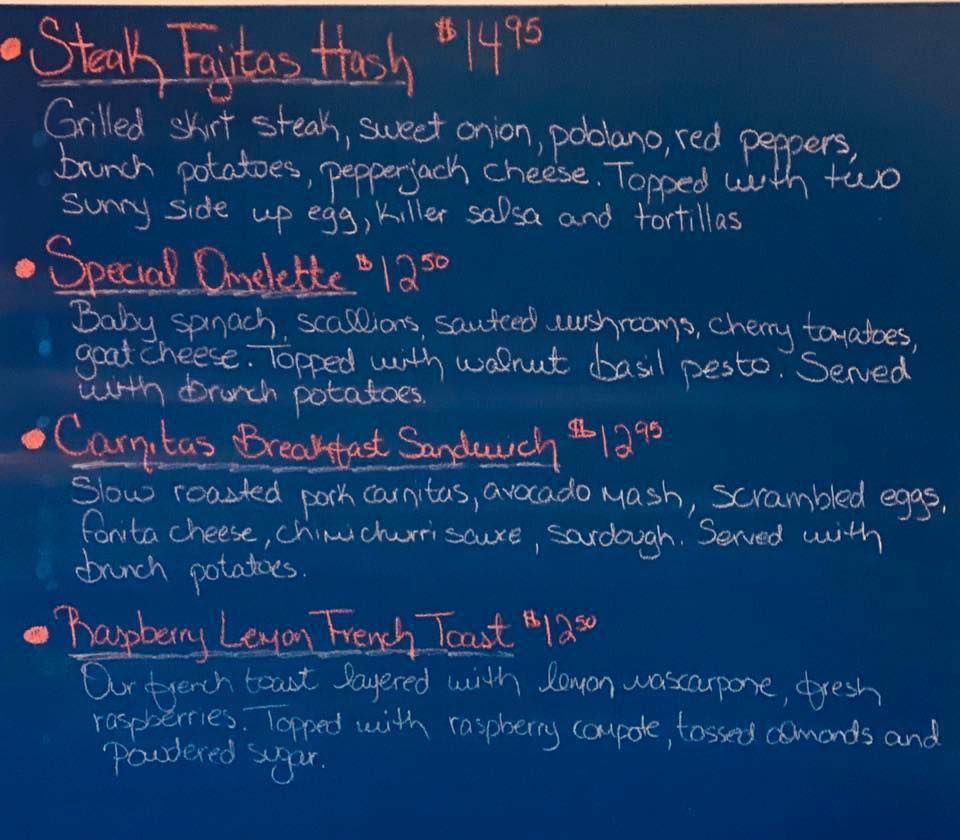 • Steak Fajitas Hash $14 95
Grilled skirt steak, sweet onion, poblano, red peppers,
brunch potatoes, pepperjack cheese. Topped with two
sunny side up egg, killer salsa and tortillas
• Special Omelette $12 50
Baby spinach, scallions, sauteed mushrooms, cherry tomatoes,
goat cheese. Topped with walnut basil pesto. Served
with brunch potatoes.
• Carnitas Breakfast Sandwich $12 95
Slow roasted pork carnitas, avocado mash, scrambled eggs,
fonita cheese, chimichurri sauce, sardough. Served with
brunch potatoes.
• Raspberry Lemon French Toast $12 50
Our french toast layered with lemon mascarpone, fresh
raspberries. Topped with raspberry compote, tossed almonds and
Powdered sugar.